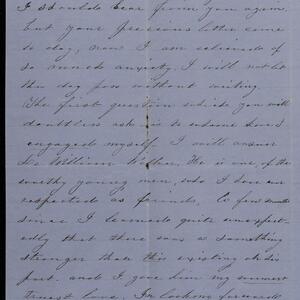 I should hear from you again.
but your precious letter came
to day, now I am relieved of
so much anxiety. I will not let
this day pass without writing.
The first question which you will
doubtless ask is to whom have I
engaged myself. I will answer
to William. He is one of the
worthy young men, who I have ever
respected as friends. A few weeks
since I learned quite unexpect-
edly that there was a something
stronger than this existing on his
part. and I gave him my sincerest
truest love. In looking forward